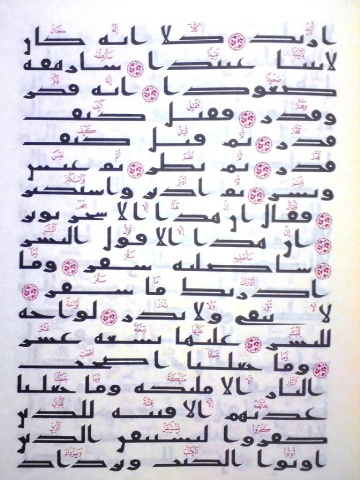 ازيد ۝ كلا انه كان
لايتنا عنيدا ۝ سارهقه
صعودا ۝ انه فكر
وقدر ۝ فقتل كيف
قدر ۝ ثم قتل كيف
قدر ۝ ثم نظر ۝ ثم عبس
وبسر ۝ ثم ادبر واستكبر
۝ فقال ان هذا الا سحر يوثر
۝ ان هذا الا قول البشر
۝ ساصليه سقر ۝ وما
ادريك ما سقر ۝
لا تبقي ولا تذر ۝ لواحة
للبشر ۝ عليها تسعة عشر
۝ وما جعلنا اصحب
النار الا ملئكة وما جعلنا
عدتهم الا فتنة للذين
كفروا ليستيقن الذين
اوتوا الكتب ويزداد